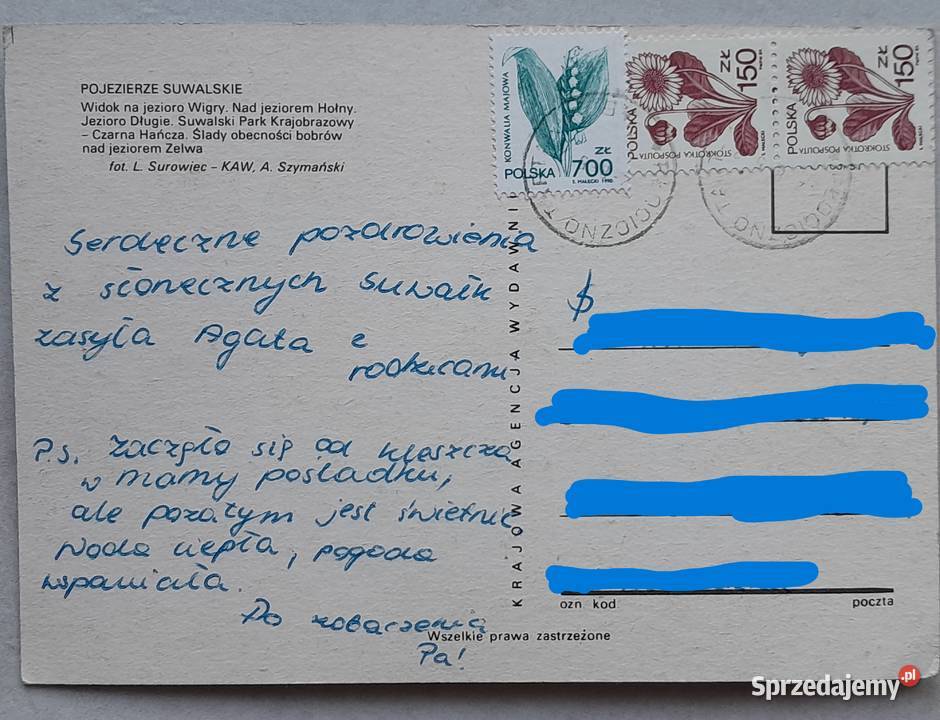 POJEZIERZE SUWALSKIE
Widok na jezioro Wigry. Nad jeziorem Hołny.
Jezioro Długie. Suwalski Park Krajobrazowy
– Czarna Hańcza. Ślady obecności bobrów
nad jeziorem Zelwa
fot. L. Surowiec – KAW, A. Szymański
KONWALIA MAJOWA
POLSKA 700 ZŁ
E. MAŁECKI 1990
POLSKA
150 ZŁ
STOKROTKA POSPOLITA
POLSKA
150 ZŁ
STOKROTKA POSPOLITA
Serdeczne pozdrowienia
z słonecznych Suwałk
zasyła Agata z
rodzicami
P.s. zaczęło się od kleszcza
w mamy pośladku,
ale pozatym jest świetnie
woda ciepła, pogoda
wspaniała.
Do zobaczenia
Pa!
KRAJOWA AGENCJA WYDAWNI
ozn. kod poczta
Wszelkie prawa zastrzeżone
Sprzedajemy.pl